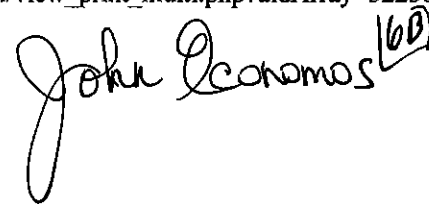 John Economos 6B